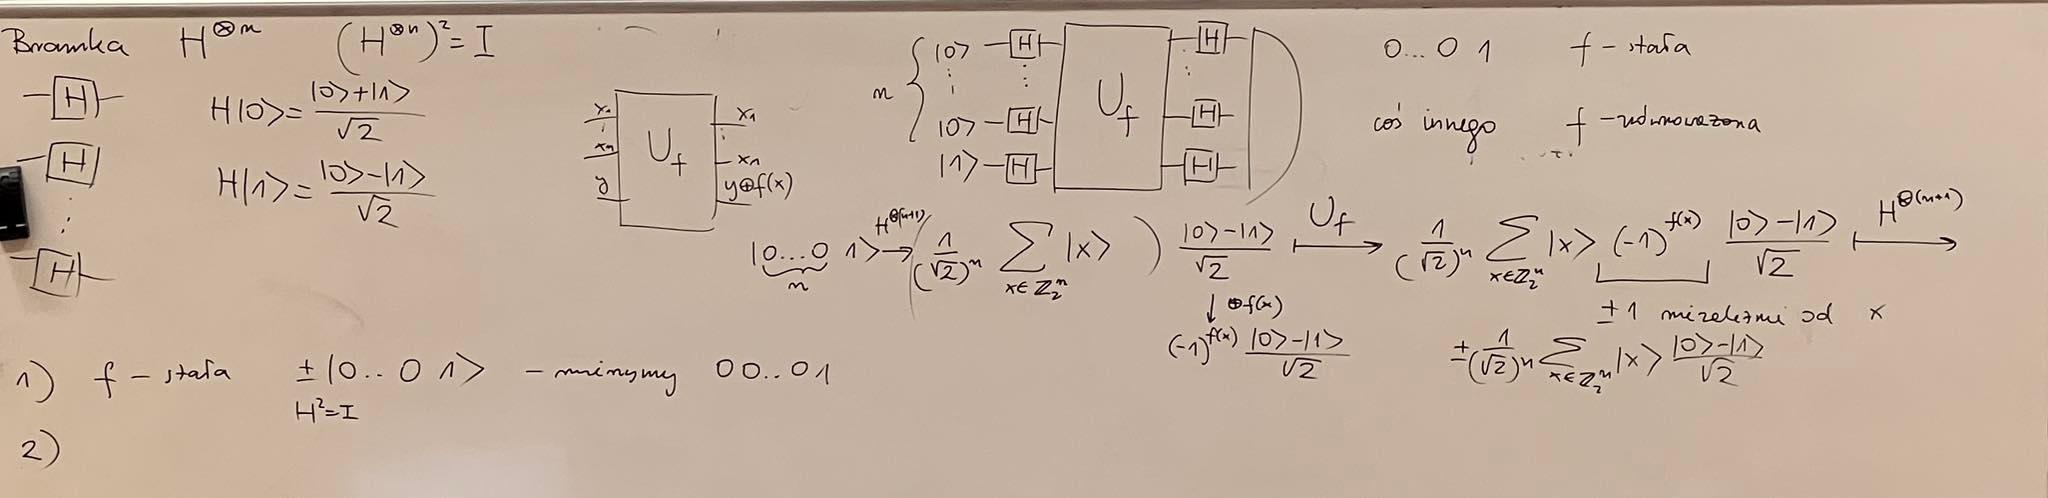 Bramka H^{⊗n} (H^{⊗n})² = I
H
H
⋮
H
H|0> = (|0>+|1>)/√2
H|1> = (|0>-|1>)/√2
x₁ x₁
⋮ U_f ⋮
xₙ xₙ
y y⊕f(x)
n { |0> H U_f H
⋮ ⋮ ⋮
|0> H H
|1> H H
0...0 1 f - stała
coś innego f - zrównoważona
|0...0 1> → H^{⊗(n+1)} (1/(√2)^n Σ_{x∈ℤ₂^n} |x>) (|0>-|1>)/√2 ↦ U_f 1/(√2)^n Σ_{x∈ℤ₂^n} |x> (-1)^{f(x)} (|0>-|1>)/√2 ↦ H^{⊗(n+1)}
n
↓ ⊕f(x)
(-1)^{f(x)} (|0>-|1>)/√2
±1 niezależni od x
± 1/(√2)^n Σ_{x∈ℤ₂^n} |x> (|0>-|1>)/√2
1) f - stała ±|0..0 1> - 00..01
H²=I
2)